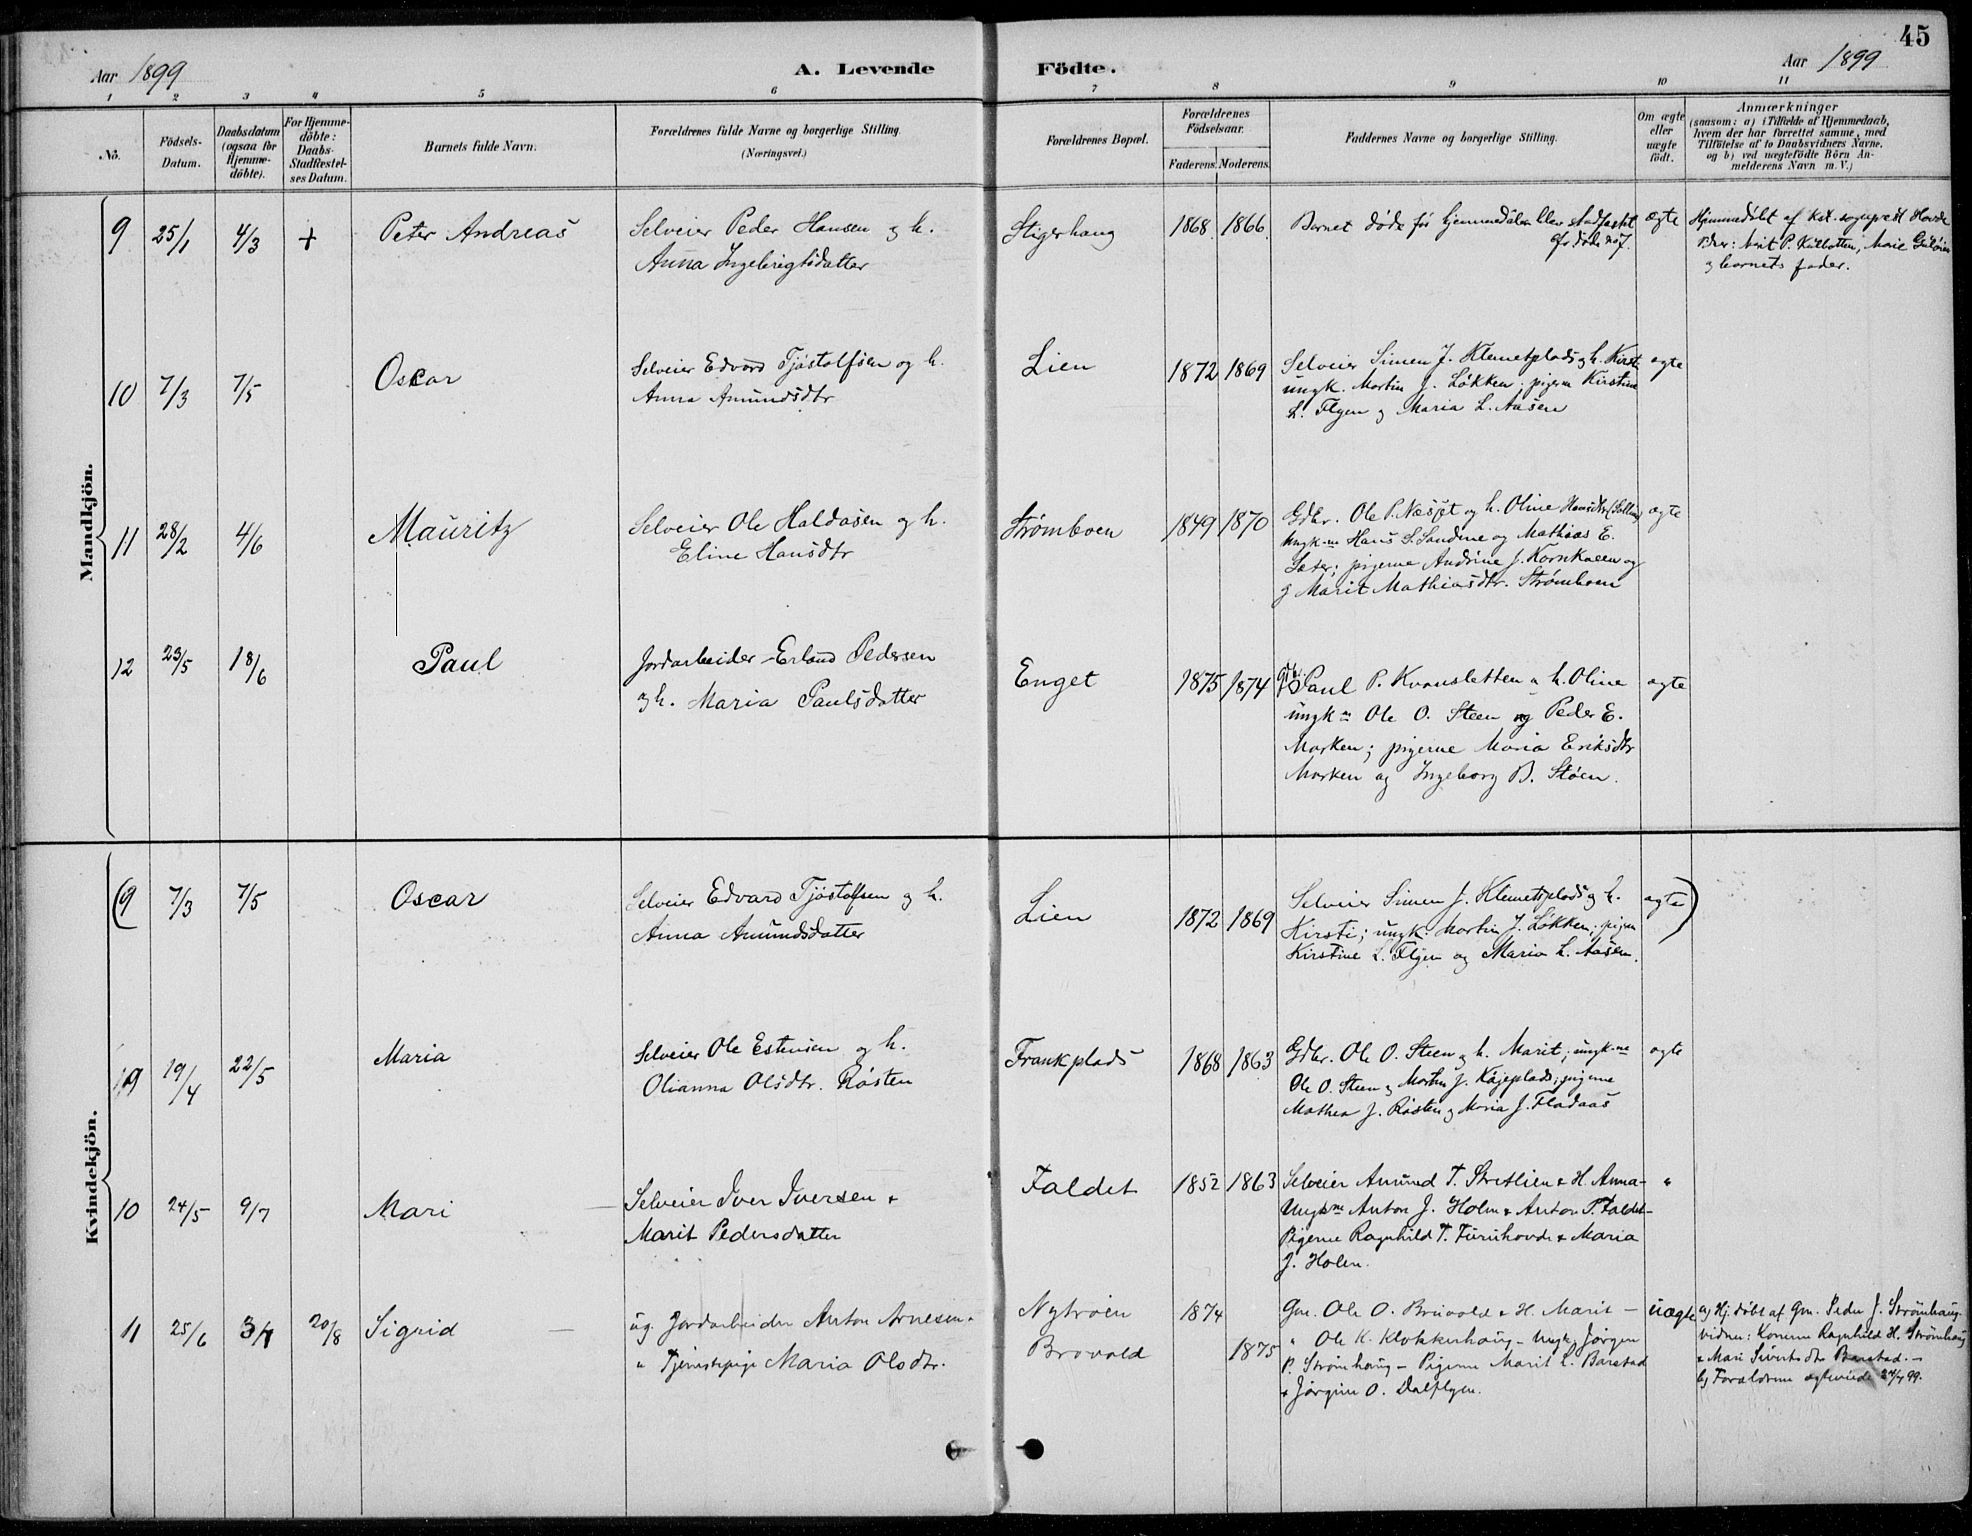 45
Aar 1899
A. Levende Födte.
Aar 1899
1 2 3 4 5 6 7 8 9 10 11
No.
Födsels-Datum.
Daabsdatum (ogsaa for Hjemme-döbte).
For Hjemme-döbte: Daabs-Stadfæstel-ses Datum.
Barnets fulde Navn.
Forældrenes fulde Navne og borgerlige Stilling.
(Næringsvei.)
Forældrenes Bopæl.
Forældrenes Födselsaar.
Faderens. Moderens.
Faddernes Navne og borgerlige Stilling.
Om ægte eller uægte födt.
Anmærkninger
(saasom: a) i Tilfælde af Hjemmedaab,
hvem der har forrettet samme, med
Tilföielse af to Daabsvidners Navne.
og b) ved uægtefödte Börn An-
melderens Navn m. V.)
Mandkjön.
9 25/1 4/3 + Peter Andreas
Selveier Peder Hansen og h.
Anna Ingebrigtsdatter
Stigerhaug 1868. 1866.
Barnet døde før hjemmedåben blev stadfæstet
cfr døde no 7.
ægte
Hjemmedøbt af kst. sognepræst Hovde
og barnets fader.
10 7/3 7/5 Oscar
Selveier Edvard Tjøstolfsen og h.
Anna Amundsdtr
Lien 1872 1869
Selveier Simen J. Klemetplads og h. Kirsti
ungk. Martin J. Løkken; pigerne Kirstine
L. Flyen og Maria L. Aasen
ægte
11 28/2 4/6 Mauritz
Selveier Ole Haldosen og h.
Eline Hansdtr
Strømboen 1849 1870
Gdbr. Ole P. Næsset og h. Oline Hansdtr
Ungk-ne Hans S. Sandene og Mathias E.
Sæter; pigerne Andrine J. Kornkveen og
og Marit Mathiasdtr. Strømboen
ægte
12 23/5 18/6 Paul
Jordarbeider Erland Pedersen
og h. Maria Paulsdatter
Enget 1875 1874
Paul P. Kvansletten og h. Oline
ungkne Ole O. Steen og Peder E.
Morken; pigerne Maria Eriksdtr
Morken og Ingeborg B. Støen.
ægte
Kvindekjön.
(9 7/3 7/5 Oscar
Selveier Edvard Tjøstolfsen og h.
Anna Amundsdatter
Lien 1872 1869
Selveier Simen J. Klemetsplads og h.
Kirsti; ungk. Martin J. Løkken; pigerne
Kirstine L. Flyen og Maria L. Aasen.
ægte)
9 19/4 22/5 Maria
Selveier Ole Estensen og h.
Olianna Olsdtr. Røsten
Frankplads 1868 1863
Gdbr. Ole O. Steen og h. Marit; ungk-ne
Ole O. Steen og Martin J. Køjeplads; pigerne
Mathea J. Røsten og Maria J. Fladaas
ægte
10 24/5 9/7 Mari
Selveier Iver Iversen &
Marit Pedersdatter
Faldet 1852 1863
Selveier Amund T. Stretlien & H. Anna-
Ungkne Anton J. Holen & Anton P. Faldet-
Pigerne Ragnhild T. Furuhovde & Maria
J. Holen.
"
11 25/6 3/7 20/8 Sigrid
ug. Jordarbeider Anton Arnesen.
" Tjenestepige Maria Olsdtr.
Nytrøen
Brovold
1874
1875
Gm. Ole O. Bruvold & H. Marit —
" Ole K. Klokkerhaug - Ungk. Jørgen
P. Strømhaug - Pigerne Marit L. Barstad
& Jørgine O. Dalflyen.
uægte
a) Hj. døbt af Gm. Peder J. Strømhaug.
vidner: Konerne Ragnhild H. Strømhaug
& Mari Sivertsdtr Barstad. -
b) Forældrene ægteviede 24/7 99.